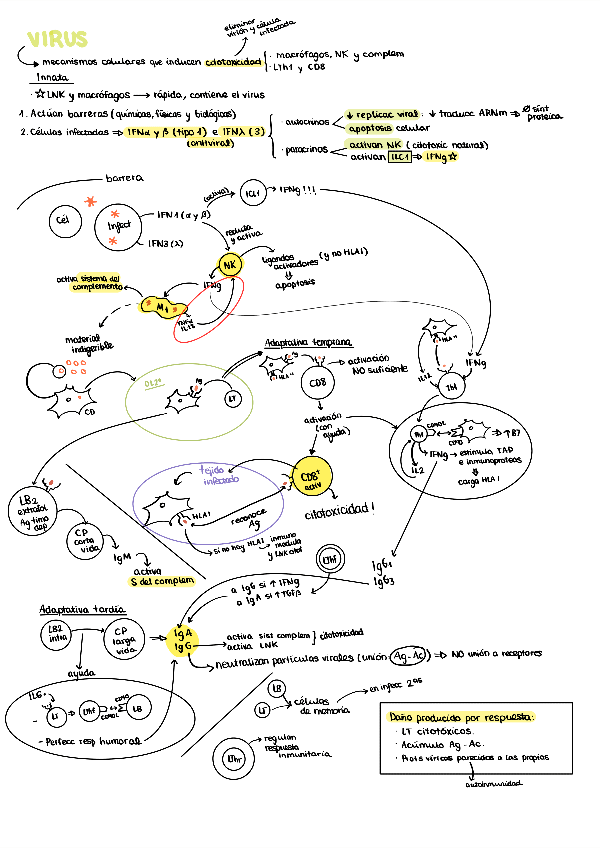 VIRUS
eliminar
virión y célula
infectada
mecanismos celulares que inducen citotoxicidad
· macrófagos, NK y complem
· LTh1 y CD8
Innata
· ☆ LNK y macrófagos → rápida, contiene el virus
1. Actúan barreras (químicas, físicas y biológicas)
2. Células infectadas ⇒ IFNα y β (tipo 1) e IFNλ (3)
(antiviral)
· autocrinos
↓ replicac viral : ↓ traducc ARNm ⇒ Ø sínt
proteica
apoptosis celular
· paracrinos
activan NK (citotoxic natural)
activan ILC1 ⇒ IFNg ☆
barrera
Cél
Infect
IFN1 (α y β)
IFN3 (λ)
(activa)
ICL1
IFNg !!!
recluta
y activa
NK
ligandos
activadores (y no HLA1)
⇓
apoptosis
IFNg
activa sistema del
complemento
M1
IL12
material
indigerible
CD
OL2º
Ag
LT
Adaptativa temprana
Ag
HLA1
CD8
activación
NO suficiente
HLA II
IL12
IFNg
Th1
activación
(con
ayuda)
CD40L
CD40
⇒ ↑B7
IL2
IFNg → estimula TAP
e inmunoproteas
⇓
carga HLA1
tejido
infectado
CD8+
activ
HLA1
reconoce
Ag
si no hay HLA1 → inmuno
modula
y LNK citot
citotoxicidad!
LB2
extrafol
Ag timo
dep
CP
corta
vida
IgM
activa
S del complem
LThf
IgG1
IgG3
a IgG si ↑ IFNg
a IgA si ↑ TGFβ
Adaptativa tardía
LB2
intra
CP
larga
vida
IgA
IgG
activa sist complem } citotoxicidad
activa LNK
neutralizan partículas virales (unión Ag-Ac) ⇒ NO unión a receptores
ayuda
IL6
LT
LThf
CD40
CD40L
LB
- Perfecc resp humoral
LB
LT
células
de memoria
en infecc 2as
LThr
regulan
respuesta
inmunitaria
Daño producido por respuesta:
· LT citotóxicos.
· Acúmulo Ag-Ac.
· Prots víricas parecidas a las propias
autoinmunidad